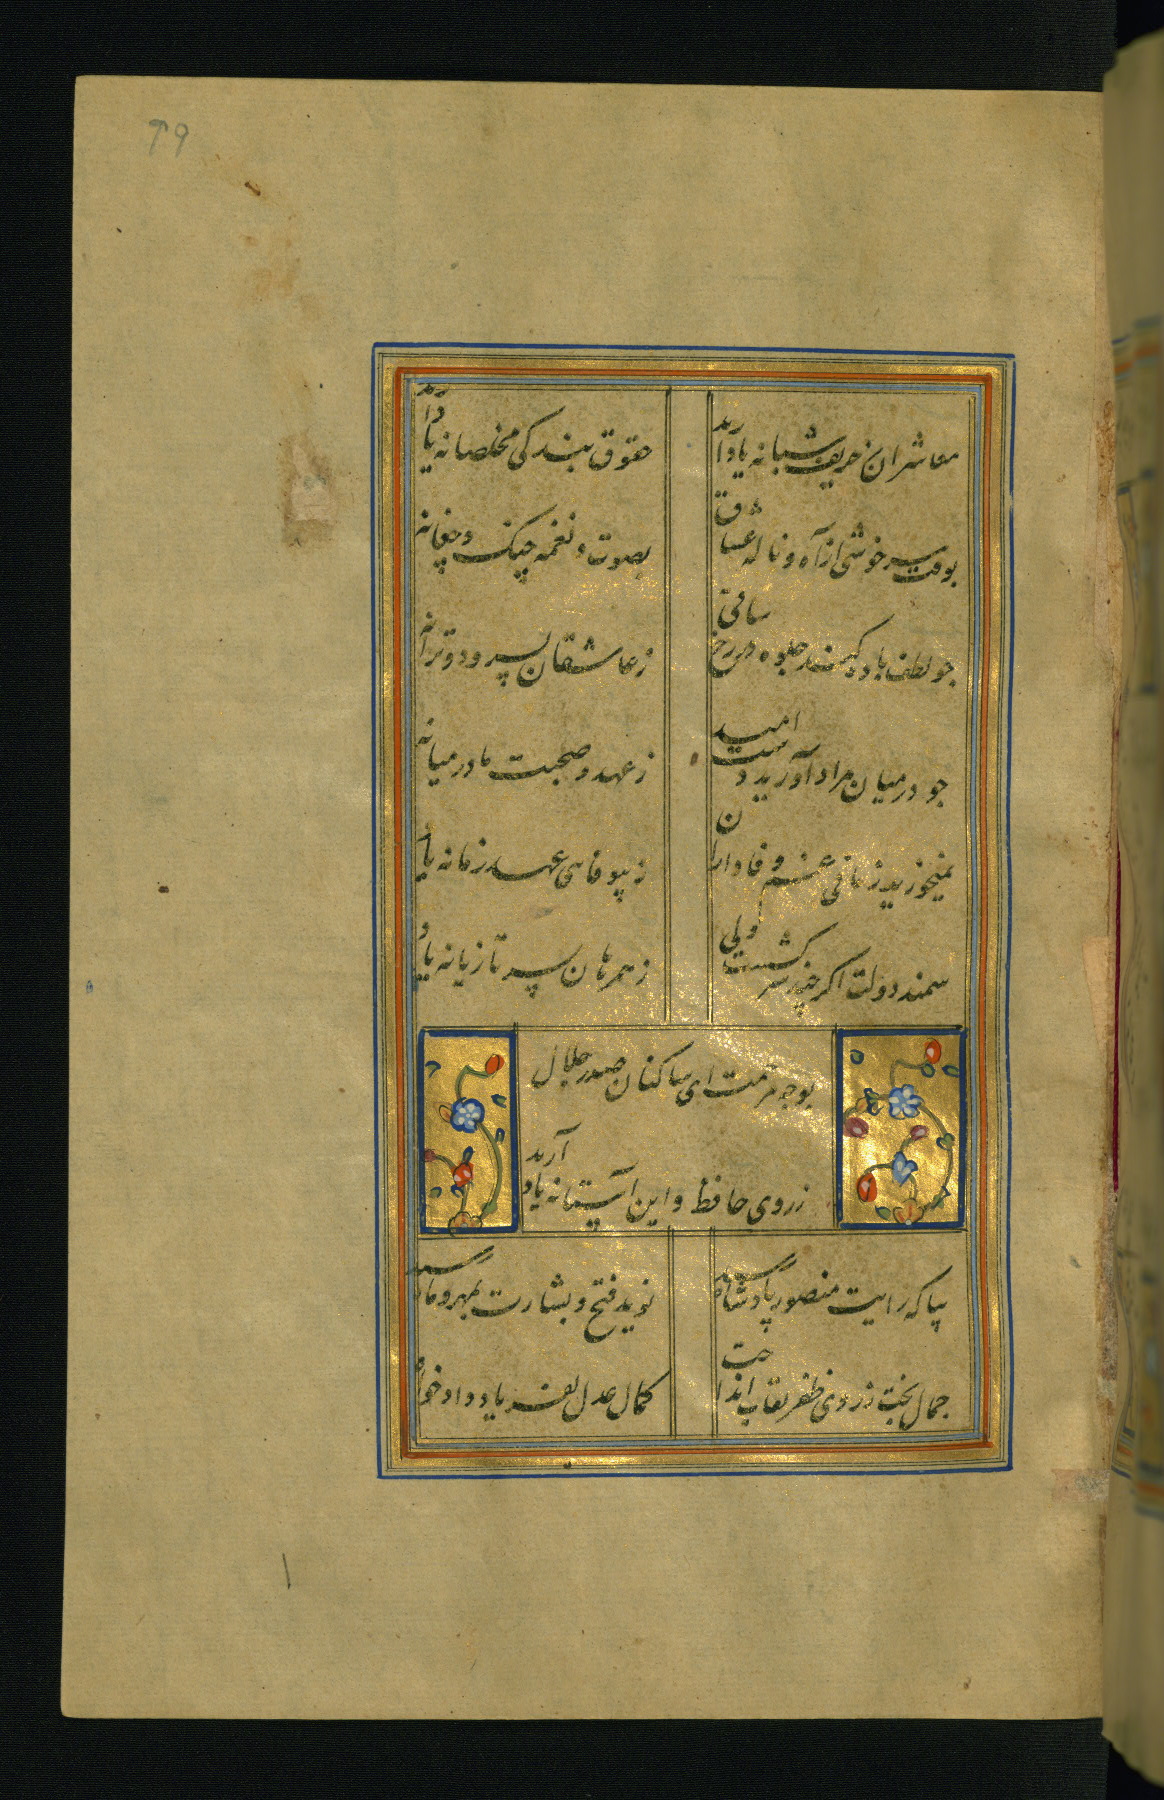 ٢٩
معاشران ز حریف شبانه یاد آرید
حقوق بندکی مخلصانه یاد آرید
بوقت سرخوشی از آه و ناله عشاق
بصوت و نغمه چنک و چغانه
چو لطف باده کند جلوه در رخ ساقی
ز عاشقان بسرود و ترانه
چو در میان مراد آورید دست امید
ز عهد و صحبت ما در میانه
نمیخورید زمانی غم وفاداران
ز بیوفایی عهد زمانه یاد
سمند دولت اکر چند سرکشست ولی
ز همرهان بسر تازیانه یاد
بوجه مرحمت ای ساکنان صدر جلال
ز روی حافظ و این آستانه یاد آرید
بیا که رایت منصور پادشاه رسید
نوید فتح و بشارت بمهر و ماه رسید
جمال بخت ز روی ظفر نقاب انداخت
کمال عدل بفریاد دادخواه